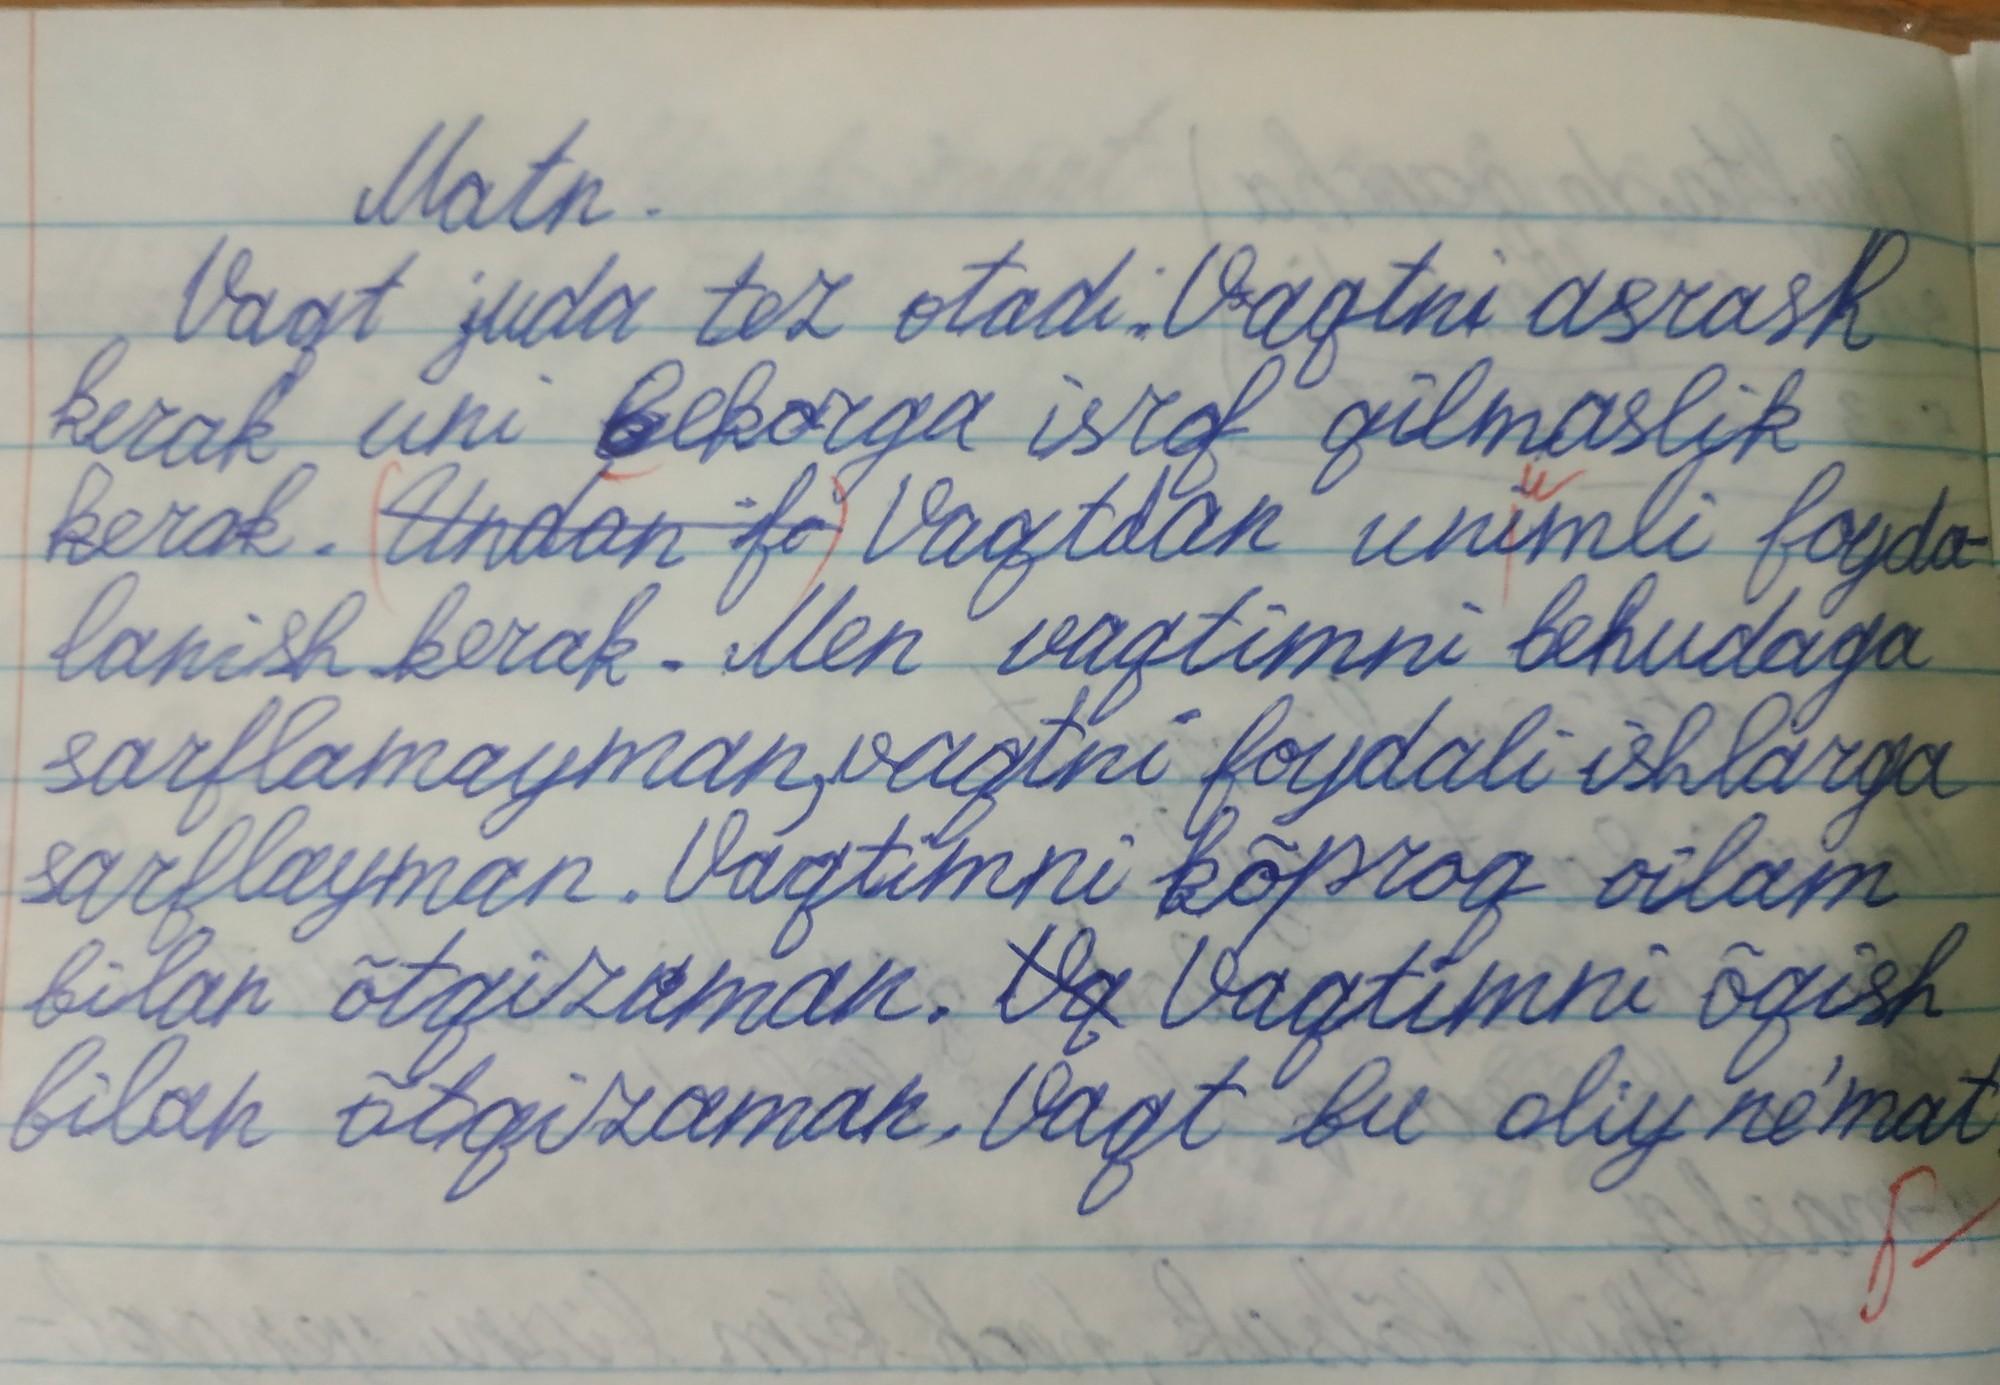 Matn.
Vaqt juda tez otadi. Vaqtni asrash
kerak uni bekorga isrof qilmaslik
kerak. (Undan fo) Vaqtdan unimli foyda-
lanish kerak. Men vaqtimni behudaga
sarflamayman, vaqtni foydali ishlarga
sarflayman. Vaqtimni kõproq oilam
bilan õtqizaman. Va Vaqtimni õqish
bilan õtqizaman. Vaqt bu oliy ne'mat.